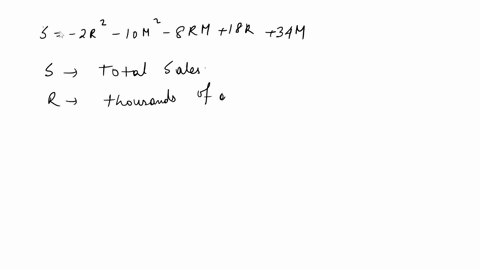 S = -2R² - 10M² - 8RM + 18R + 34M
S → Total Sales.
R → thousands of